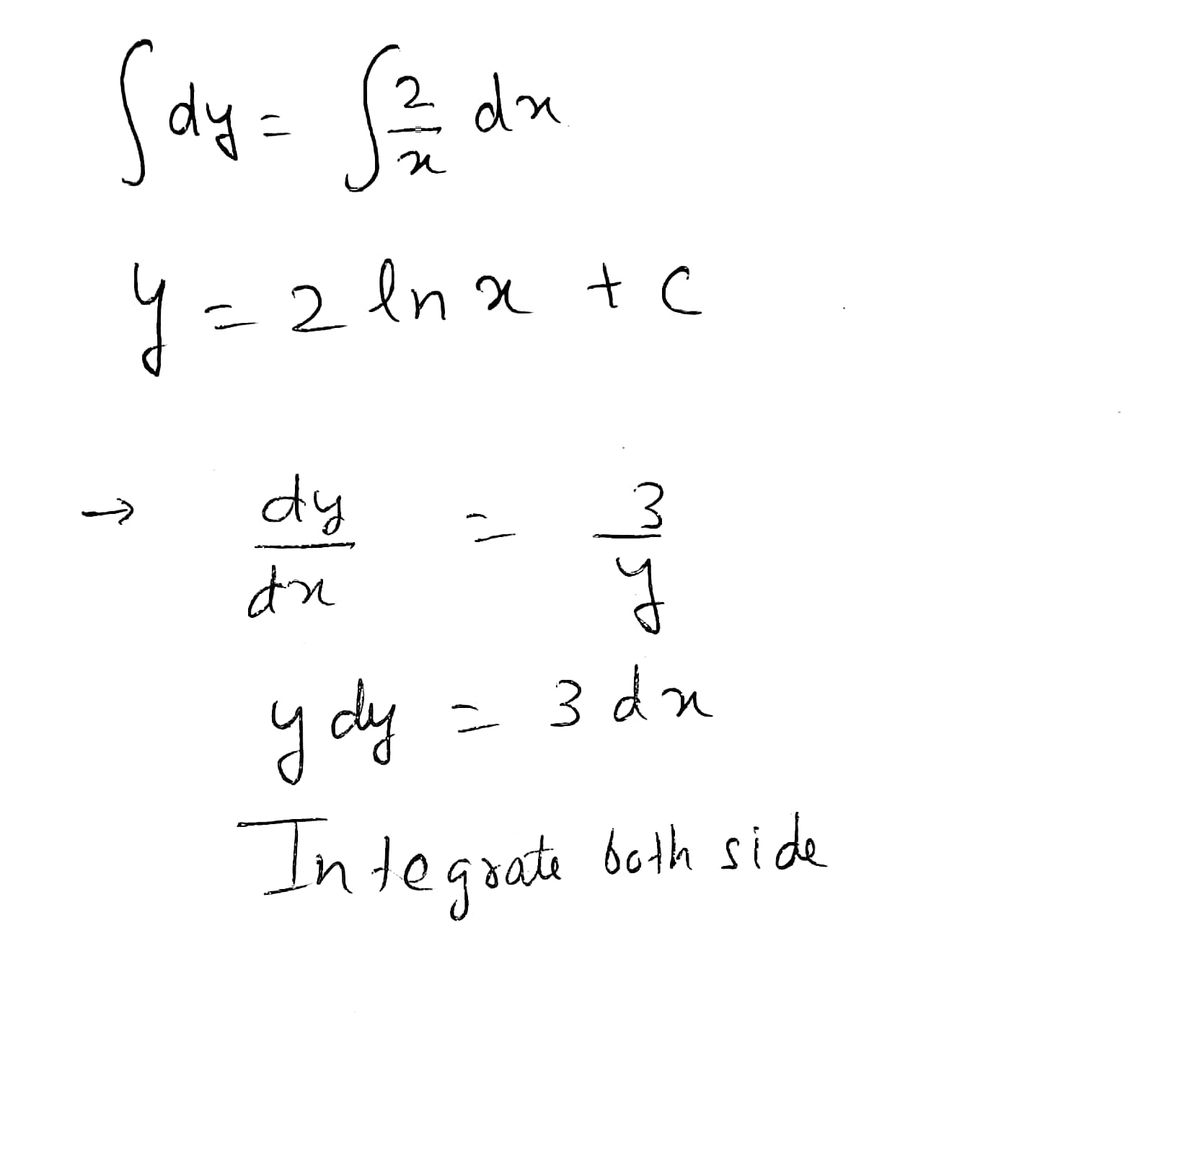 ∫ dy = ∫ 2/x dx
y = 2 ln x + c
→ dy/dx = 3/y
y dy = 3 dx
Integrate both side